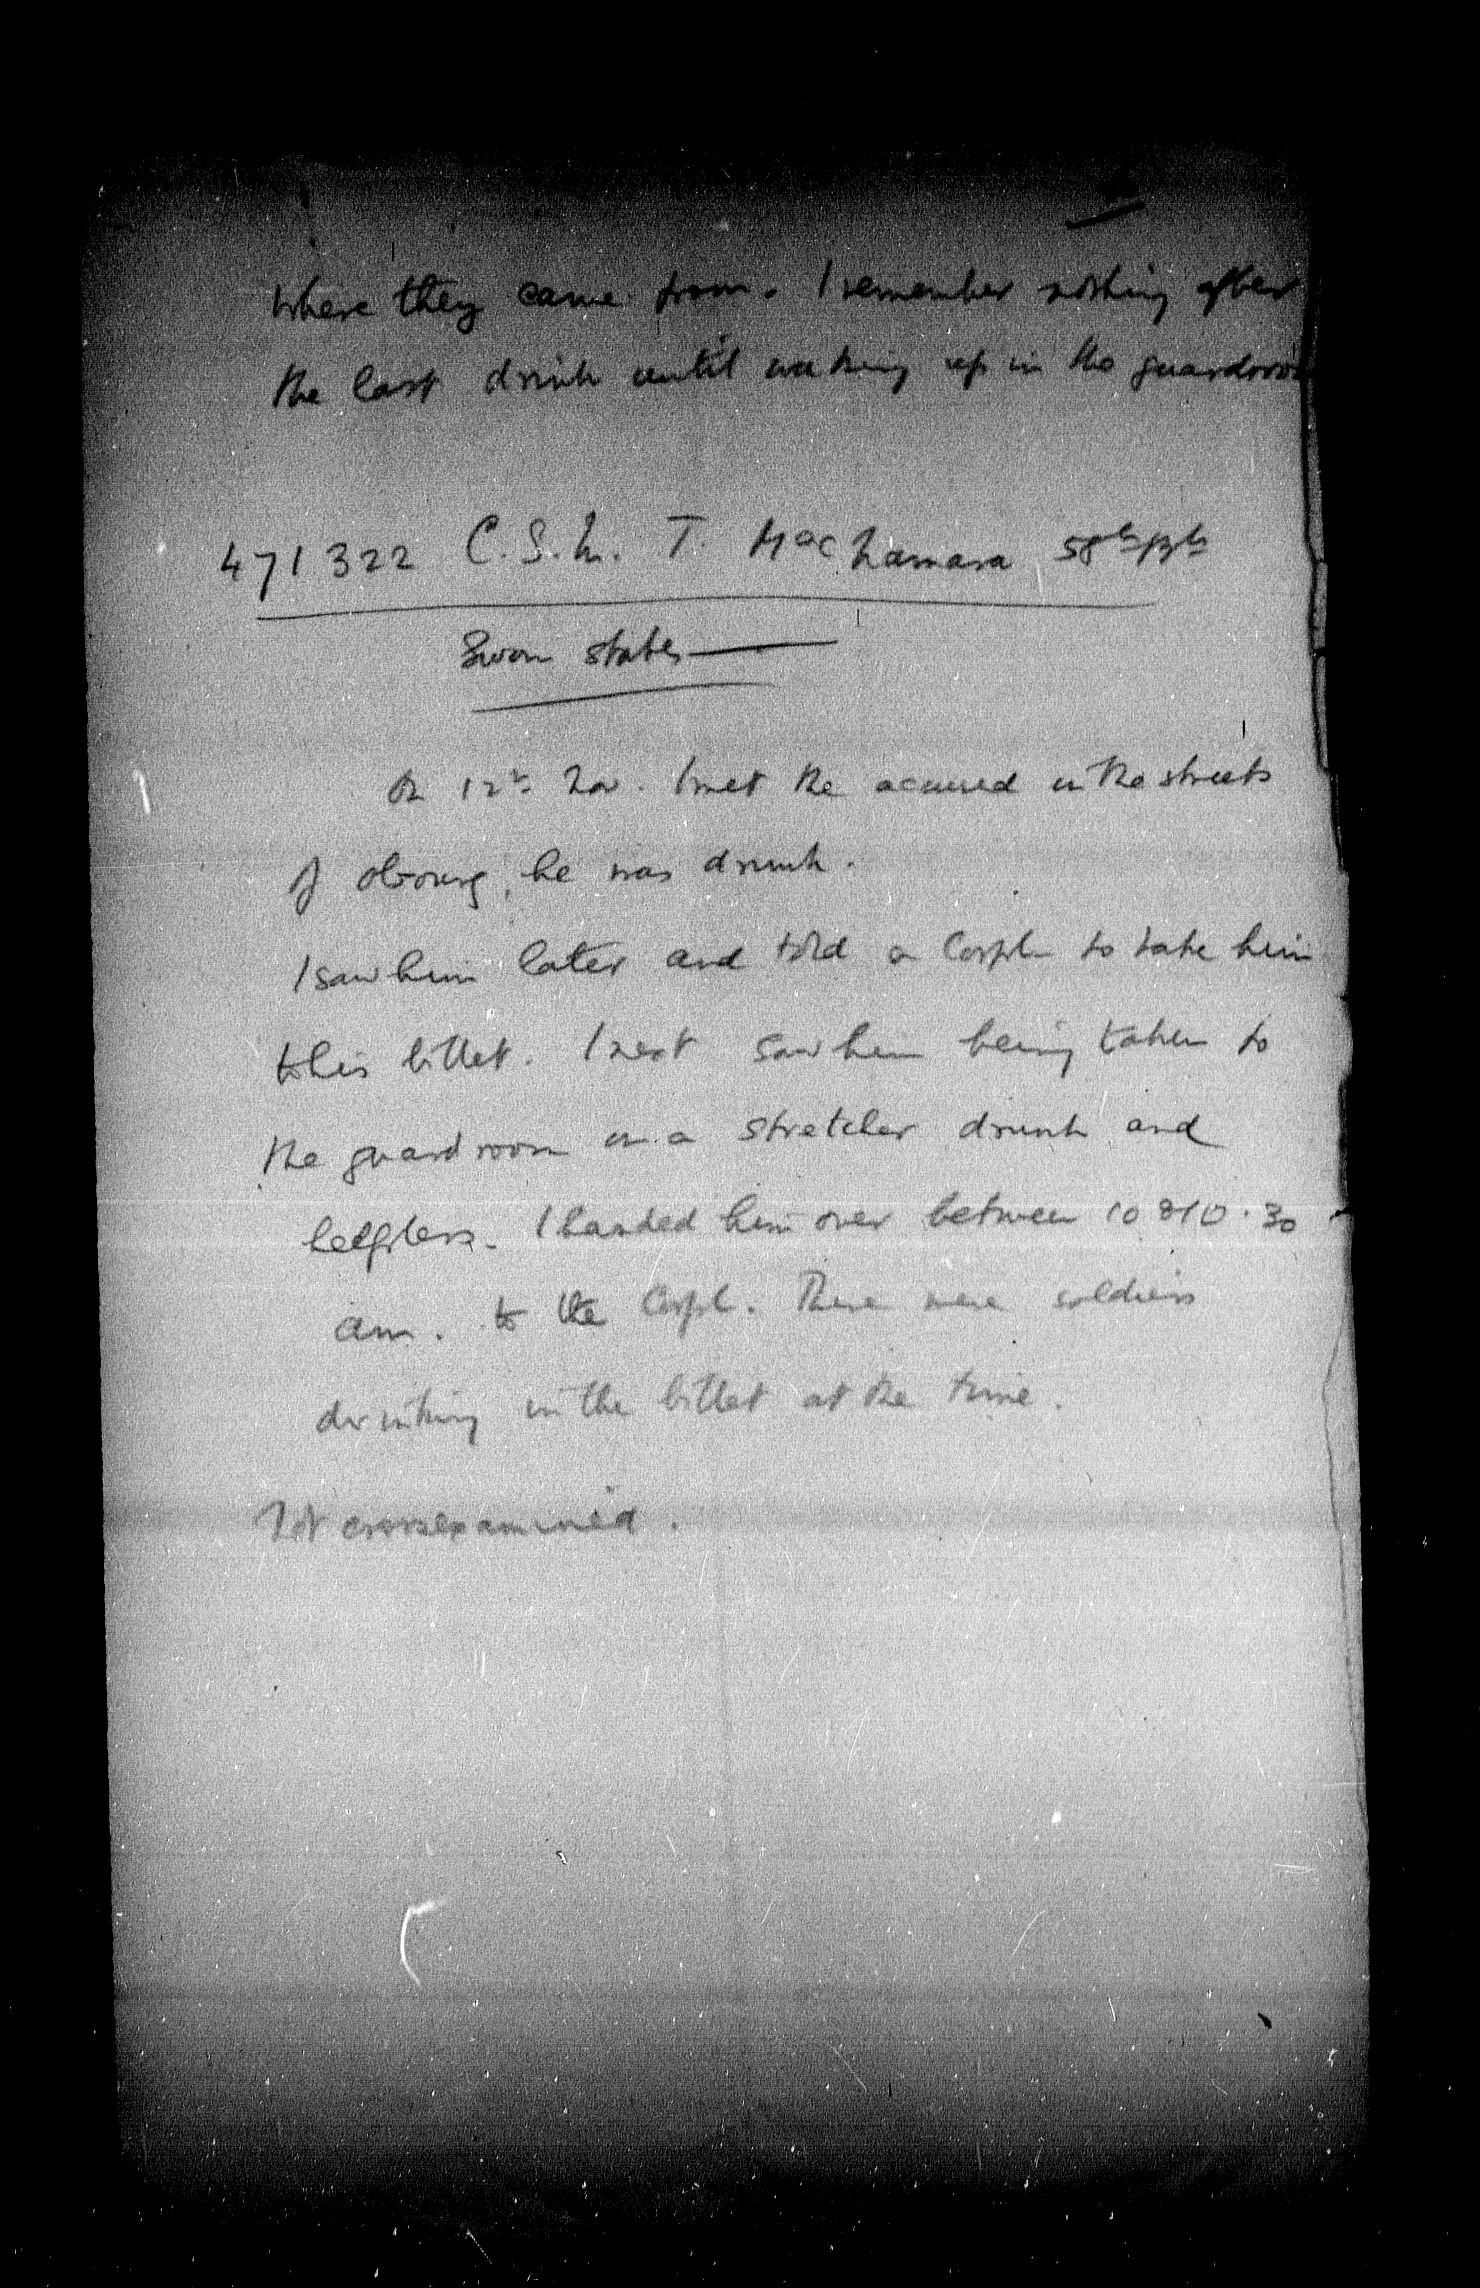 where they came from. I remember nothing after
the last drink until waking up in the guardroom
471322 C.S.M. T. MacNamara 58th Bn
Sworn states
On 12th Nov. I met the accused in the streets
of obourg, he was drunk.
I saw him later and told a Corpl to take him
to his billet. I next saw him being taken to
the guardroom on a stretcher drunk and
helpless. I handed him over between 10 & 10.30
am. to the Corpl. There were soldiers
drinking in the billet at the time.
Not crossexamined.